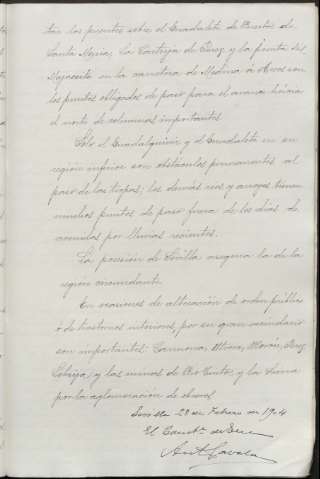 tas los puentes sobre el Guadalete de Puerto de
Santa María, la Cartuja de Jerez y la Junta del
Majaceite en la carretera de Medina á Arcos son
los puntos obligados de paso para el avance hácia
el norte de columnas importantes.
Solo el Guadalquivir y el Guadalete en su
región inferior son obstáculos permanentes al
paso de las tropas; los demás rios y arroyos tienen
muchos puntos de paso fuera de los dias de
avenidas por lluvias recientes.
La posesión de Sevilla asegura la de la
región circundante.
En razones de alteración de orden público
ó de trastornos interiores, por su gran vecindario
son importantes: Carmona, Utrera, Morón, Jerez
Lebrija, y las minas de Rio Tinto, y la
por la aglomeración de
Sevilla 28 de Febrero de 1904
El Comte. de
Ant. Gavela